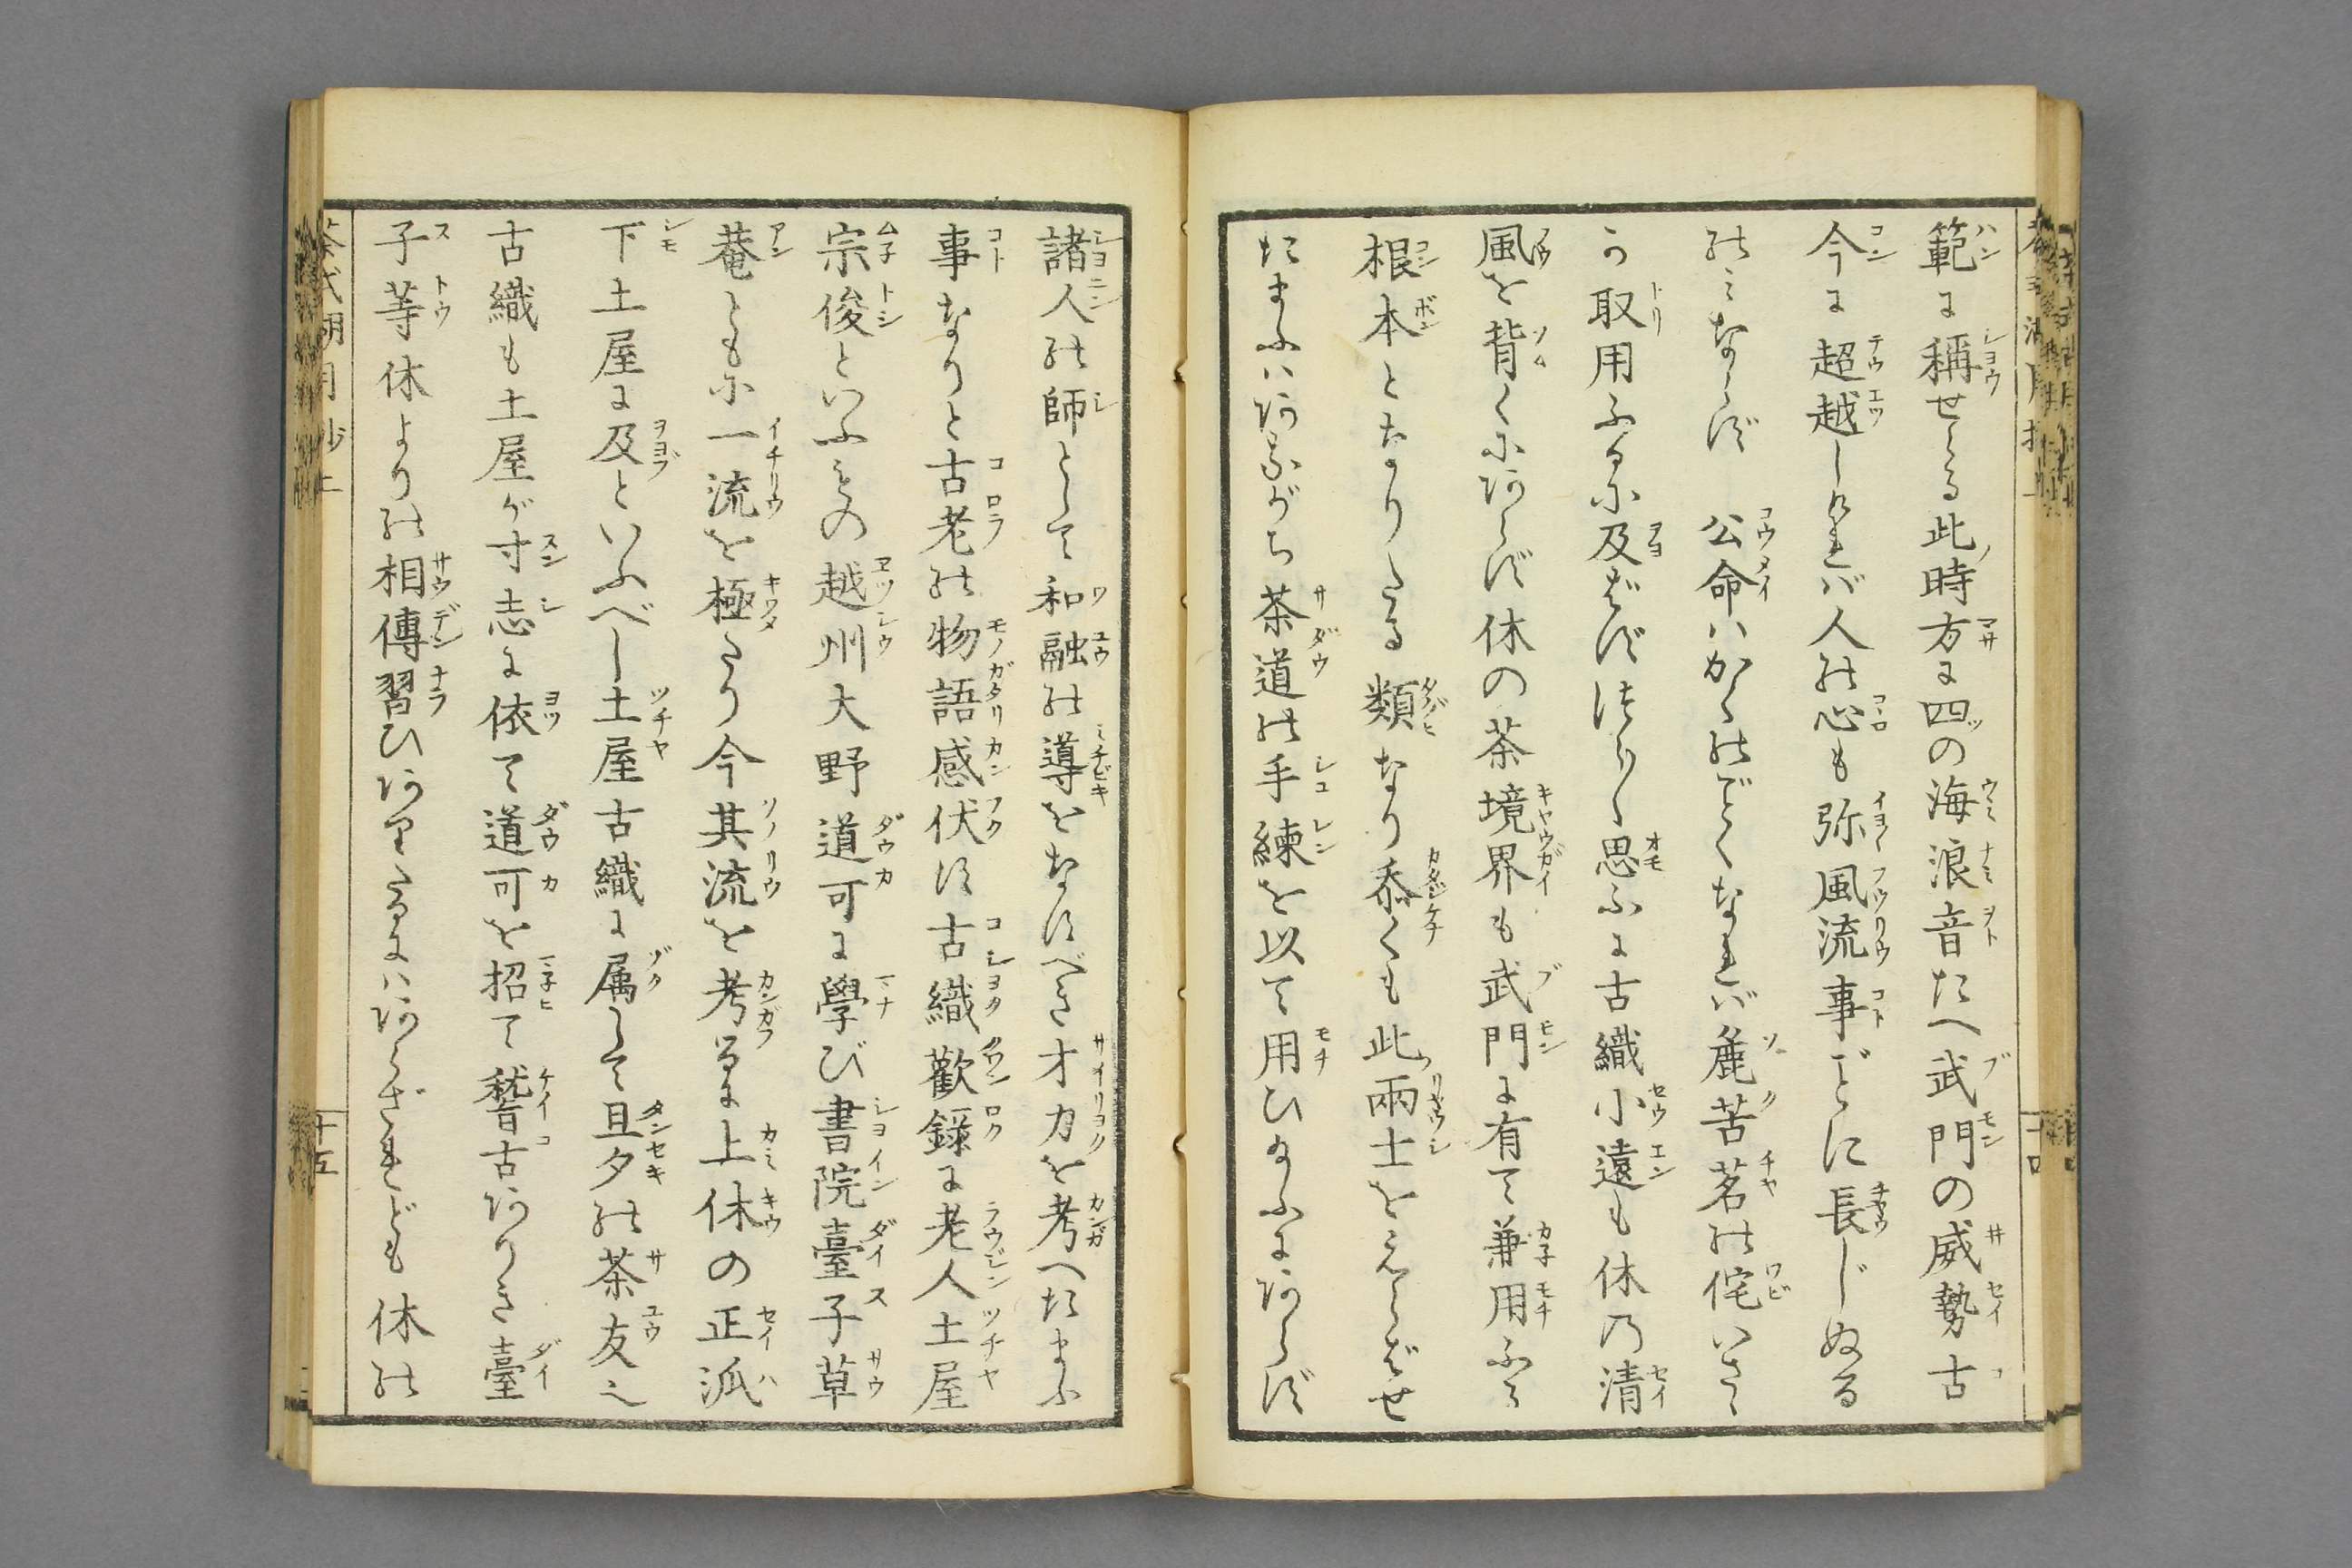 範に稱せらる此時方に四の海浪音たへ武門の威勢古
今に超越しければ人の心も弥風流事ごとに長じぬる
のみならず 公命はかくのごとくなれば麁苦茗の侘いさゝ
か取用ふるに及ばずつら〳〵思ふに古織小遠も休の清
風を背くにあらず休の茶境界も武門に有て兼用ふる
根本となりたる類なり忝くも此兩士をえらばせ
たまふはあながち茶道の手練を以て用ひ給ふにあらず
諸人の師として和融の導をなすべき才力を考へたまふ
事なりと古老の物語感伏す古織歡録に老人土屋
宗俊といふもの越州大野道可に學び書院臺子草
菴ともに一流を極たり今其流を考るに上休の正泒
下土屋に及といふべし土屋古織に属して旦夕の茶友也
古織も土屋が寸志に依て道可を招て稽古ありき臺
子等休よりの相傳習ひありたるにはあらざれども休の
茶式湖月抄上
十五